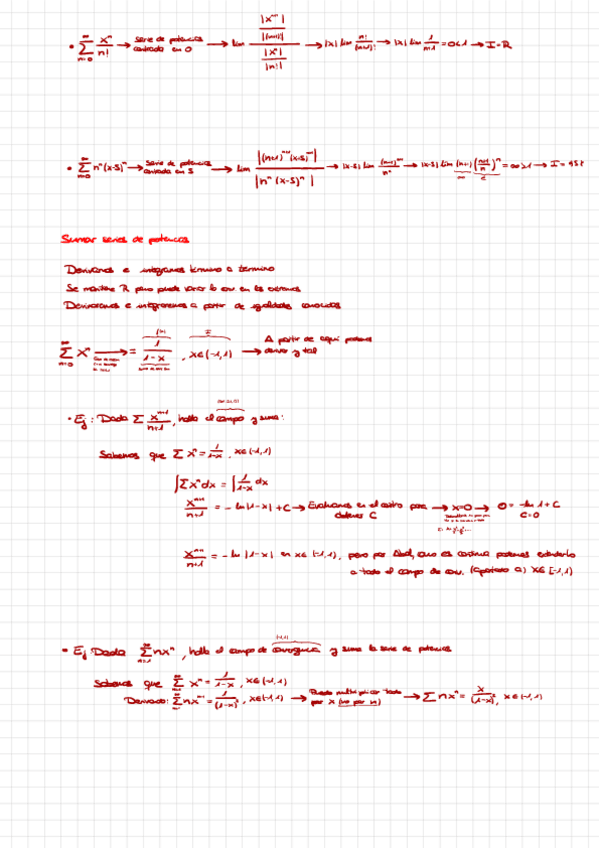 • ∑_{n=0}^{∞} x^n/n! → serie de potencias centrada en 0 → lim (|x^{n+1}|/|(n+1)!|)/(|x^n|/|n!|) → |x| lim n!/(n+1)! → |x| lim 1/(n+1) = 0 < 1 → I = R
• ∑_{n=0}^{∞} n^n (x-5)^n → serie de potencias centrada en 5 → lim |(n+1)^{n+1} (x-5)^{n+1}| / |n^n (x-5)^n| → |x-5| lim (n+1)^{n+1}/n^n → |x-5| lim (n+1) ((n+1)/n)^n = ∞ > 1 → I = {5}
Sumar series de potencias
Derivamos e integramos término a término
Se mantiene R pero puede variar la conv en los extremos
Derivaremos e integraremos a partir de igualdades conocidas
∑_{n=0}^{∞} x^n → = 1/(1-x), x ∈ (-1,1) → A partir de aquí podemos derivar y tal
• Ej: Dada ∑ x^{n+1}/(n+1), halla el campo y suma:
Sabemos que ∑ x^n = 1/(1-x), x ∈ (-1,1)
∫∑ x^n dx = ∫ 1/(1-x) dx
x^{n+1}/(n+1) = -ln|1-x| + C → Evaluamos en el centro para obtener C → x=0 → 0 = -ln 1 + C
C=0
x^{n+1}/(n+1) = -ln|1-x| en x ∈ (-1,1), pero por Abel, como es continua podemos extenderlo
a todo el campo de conv. (Apartado a) x ∈ [-1,1)
• Ej: Dada ∑_{n=1}^{∞} nx^n, halla el campo de convergencia (-1,1) y suma la serie de potencias
Sabemos que ∑ x^n = 1/(1-x), x ∈ (-1,1)
Derivado: ∑ nx^{n-1} = 1/(1-x)^2, x ∈ (-1,1) → Puedo multiplicar todo por x (no por n) → ∑ nx^n = x/(1-x)^2, x ∈ (-1,1)